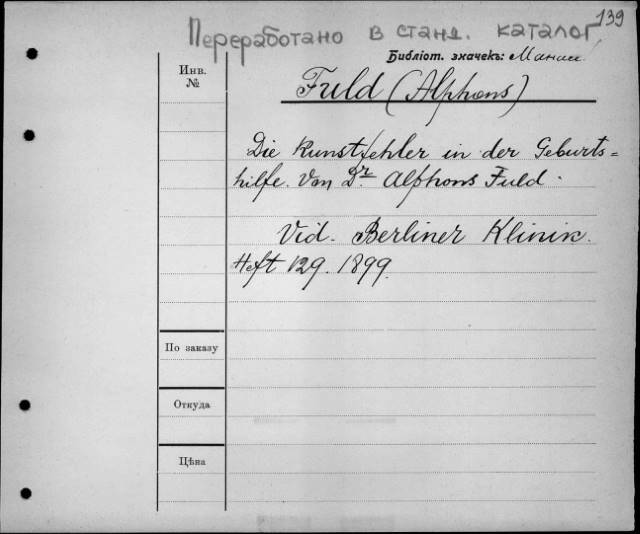 139
Переработано в станд. каталог
Библіот. значекъ:
Инв.
№
Fuld (Alphons)
Die Kunstfehler in der Geburts=
hilfe. Von Dr. Alphons Fuld.
Vid. Berliner Klinik.
Heft 129. 1899.
По заказу
Откуда
Цѣна